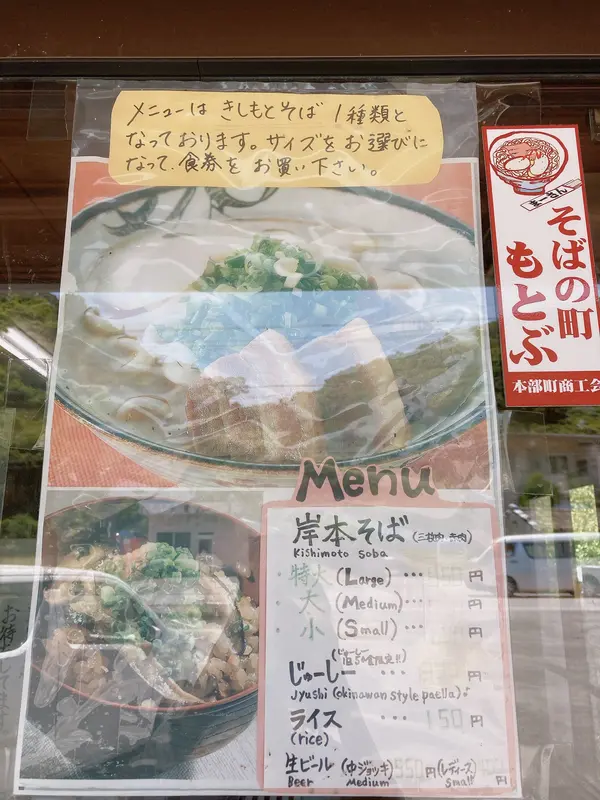 メニューは きしもとそば 1種類と
なっております。サイズをお選びに
なって、食券を お買い下さい。
まーさん
そばの町
もとぶ
本部町商工会
Menu
岸本そば (三枚肉 赤肉)
Kishimoto Soba
・特大 (Large) ・・・ 円
・大 (Medium)・・・ 円
・小 (Small)・・・ 円
じゅーしー ・・・ 円
Jyushi (Okinawan style paella)♪
ライス ・・・ 150 円
(rice)
生ビール (中ジョッキ) 550円 (レディース) 円
Beer Medium Small
お待